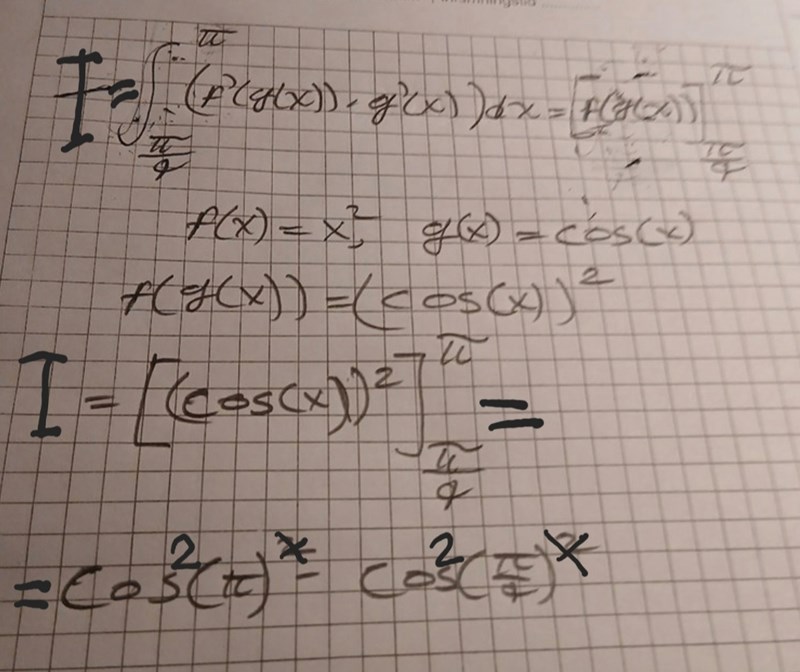 I = ∫_{π/4}^{π} (f'(g(x)) · g'(x)) dx = [f(g(x))]_{π/4}^{π}
f(x) = x², g(x) = cos(x)
f(g(x)) = (cos(x))²
I = [(cos(x))²]_{π/4}^{π} =
= cos²(π) - cos²(π/4)